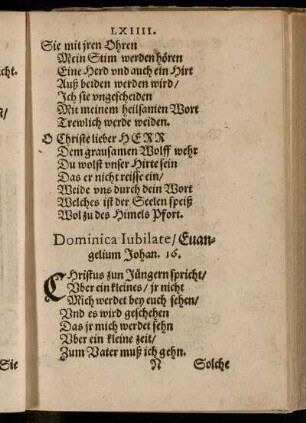 LXIIII.
Sie mit jren Ohren
Mein Stim werden hören
Eine Herd vnd auch ein Hirt
Auß beiden werden wird/
Ich sie vngescheiden
Mit meinem heilsamen Wort
Trewlich werde weiden.
O Christe lieber HERR
Dem grausamen Wolff wehr
Du wolst vnser Hirte sein
Das er nicht reisse ein/
Weide vns durch dein Wort
Welches ist der Seelen speiß
Wol zu des Himels Pfort.
Dominica Iubilate/ Euan-
gelium Johan. 16.
CHristus zun Jüngern spricht/
Vber ein kleines/ jr nicht
Mich werdet bey euch sehen/
Vnd es wird geschehen
Das jr mich werdet sehn
Vber ein kleine zeit/
Zum Vater muß ich gehn.
N Solche
cht.
Sie